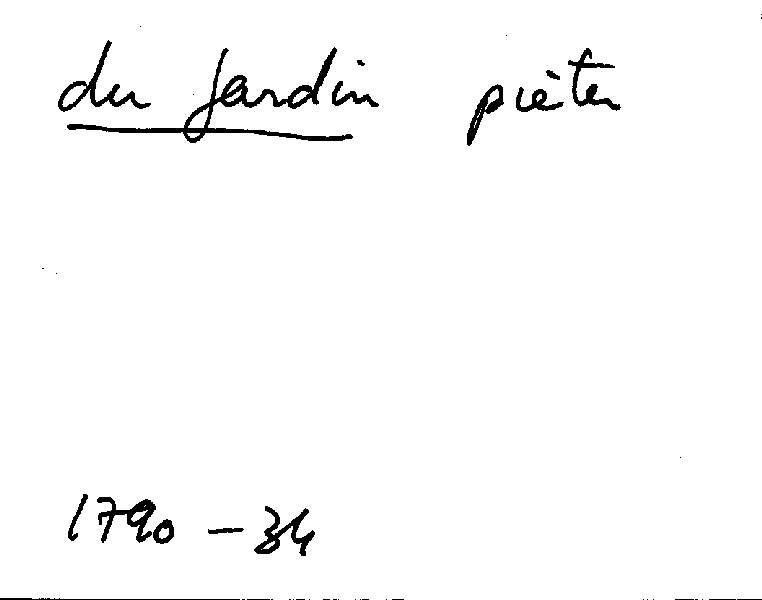 du Jardin pièter
1790 - 34